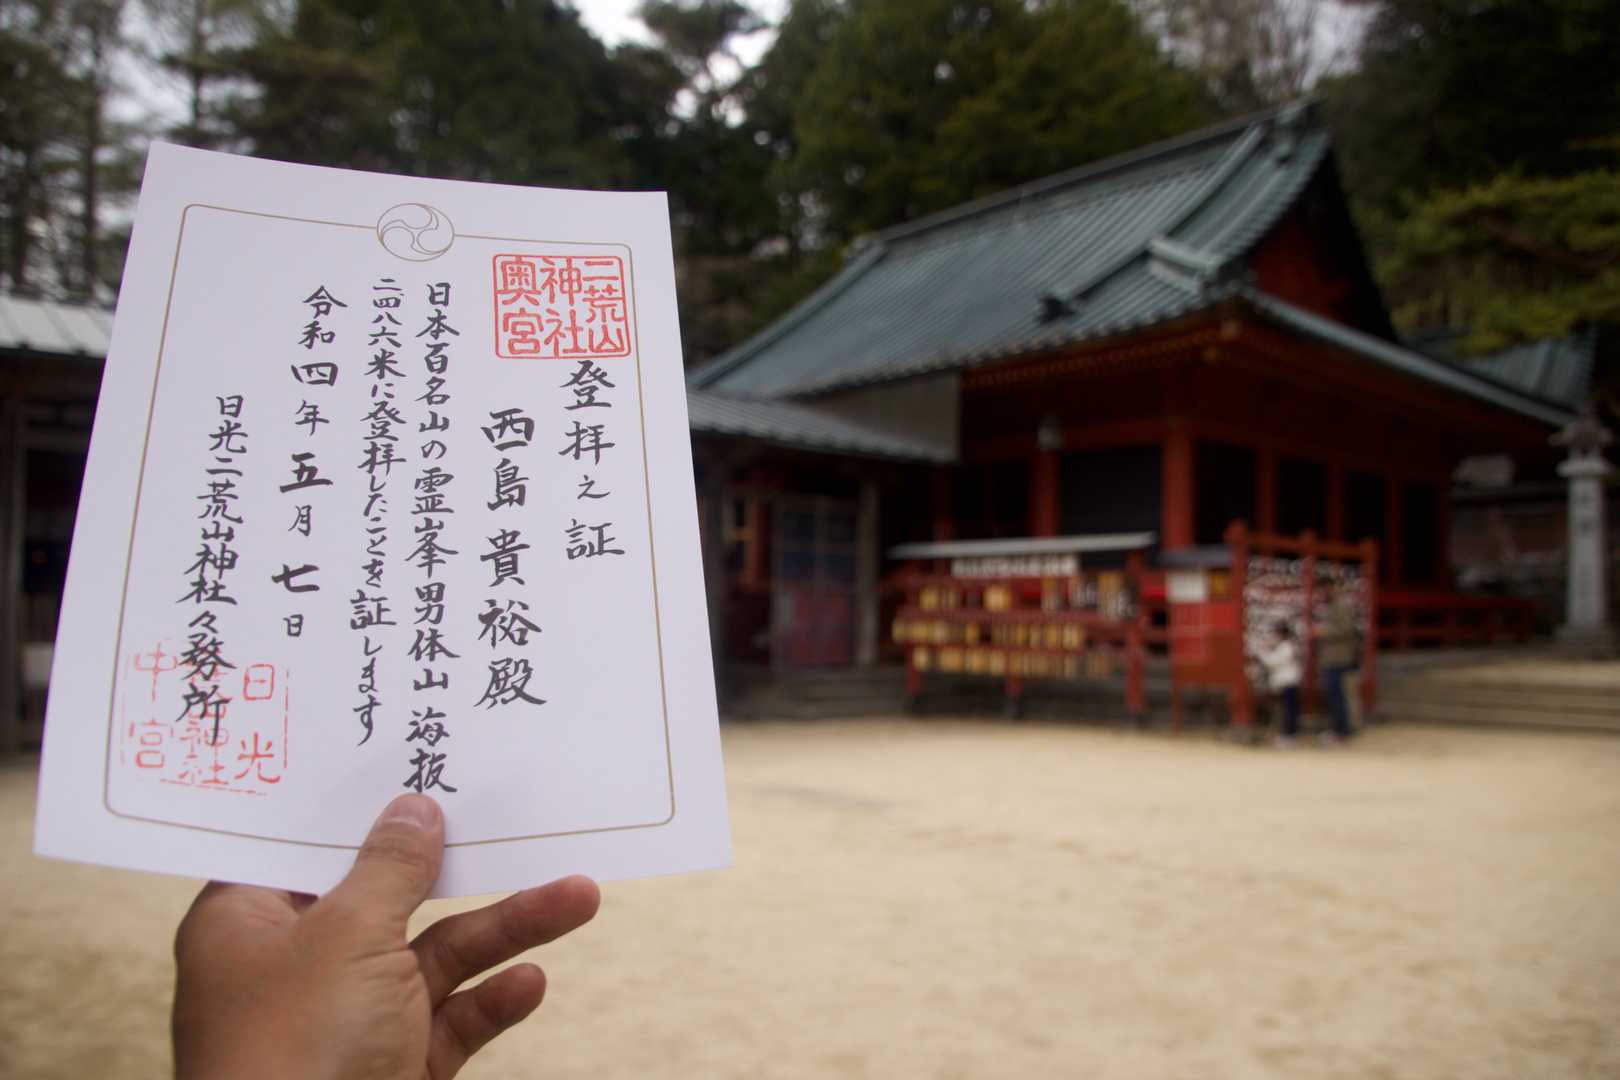 二荒山
神社
奥宮
登拝之証
西島貴裕殿
日本百名山の霊峯男体山海抜
二四八六米に登拝したことを証します
令和四年五月七日
日光二荒山神社々務所
日光
神社
中宮